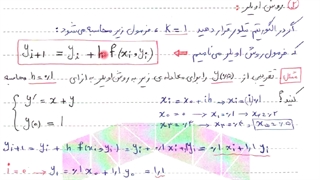 ② روش اویلر:
اگر در الگوریتم تیلور قرار دهید K = 1 فرمول زیر محاسبه می شود:
y_{i+1} = y_i + h f(x_i, y_i) ⇐ که فرمول روش اویلر می نامیم
مثال: تقریبی از y(0/5) را برای معادله ی زیر به روش اویلر به ازای h = 0/1 محاسبه
کنید؟
{ y' = x + y
y(0) = 1
x_i = x_0 + ih → x_i =
y_{i+1} = y_i + h f(x_i, y_i) = y_i + 0/1 x_i + 0/1 y_i = 0/1 x_i + 1/1 y_i
i = 0 → y_1 = 0/1 x_0 + 1/1 y_0 = 1/1